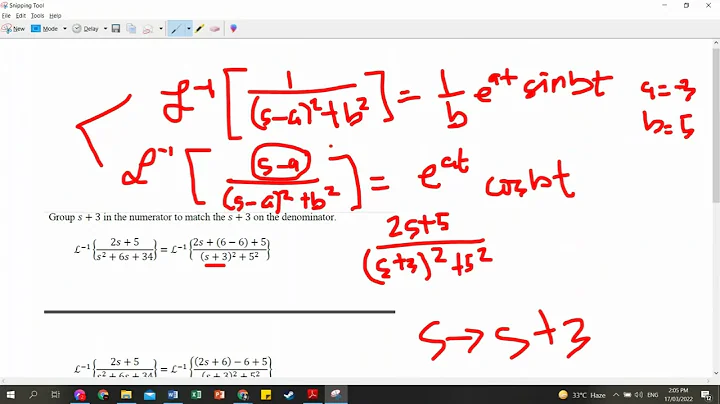 Snipping Tool
File Edit Tools Help
New Mode Delay
ℒ⁻¹[1/((s-a)²+b²)] = 1/b e^at sinbt a=-3
b=5
ℒ⁻¹[(s-a)/((s-a)²+b²)] = e^at cosbt
Group s + 3 in the numerator to match the s + 3 on the denominator.
ℒ⁻¹{(2s + 5)/(s² + 6s + 34)} = ℒ⁻¹{(2s + (6 − 6) + 5)/((s + 3)² + 5²)}
(2s+5)/((s+3)²+5²)
s → s+3
ℒ⁻¹{(2s + 5)/(s² + 6s + 34)} = ℒ⁻¹{((2s + 6) − 6 + 5)/((s + 3)² + 5²)}
33°C Haze ENG 2:05 PM
17/03/2022